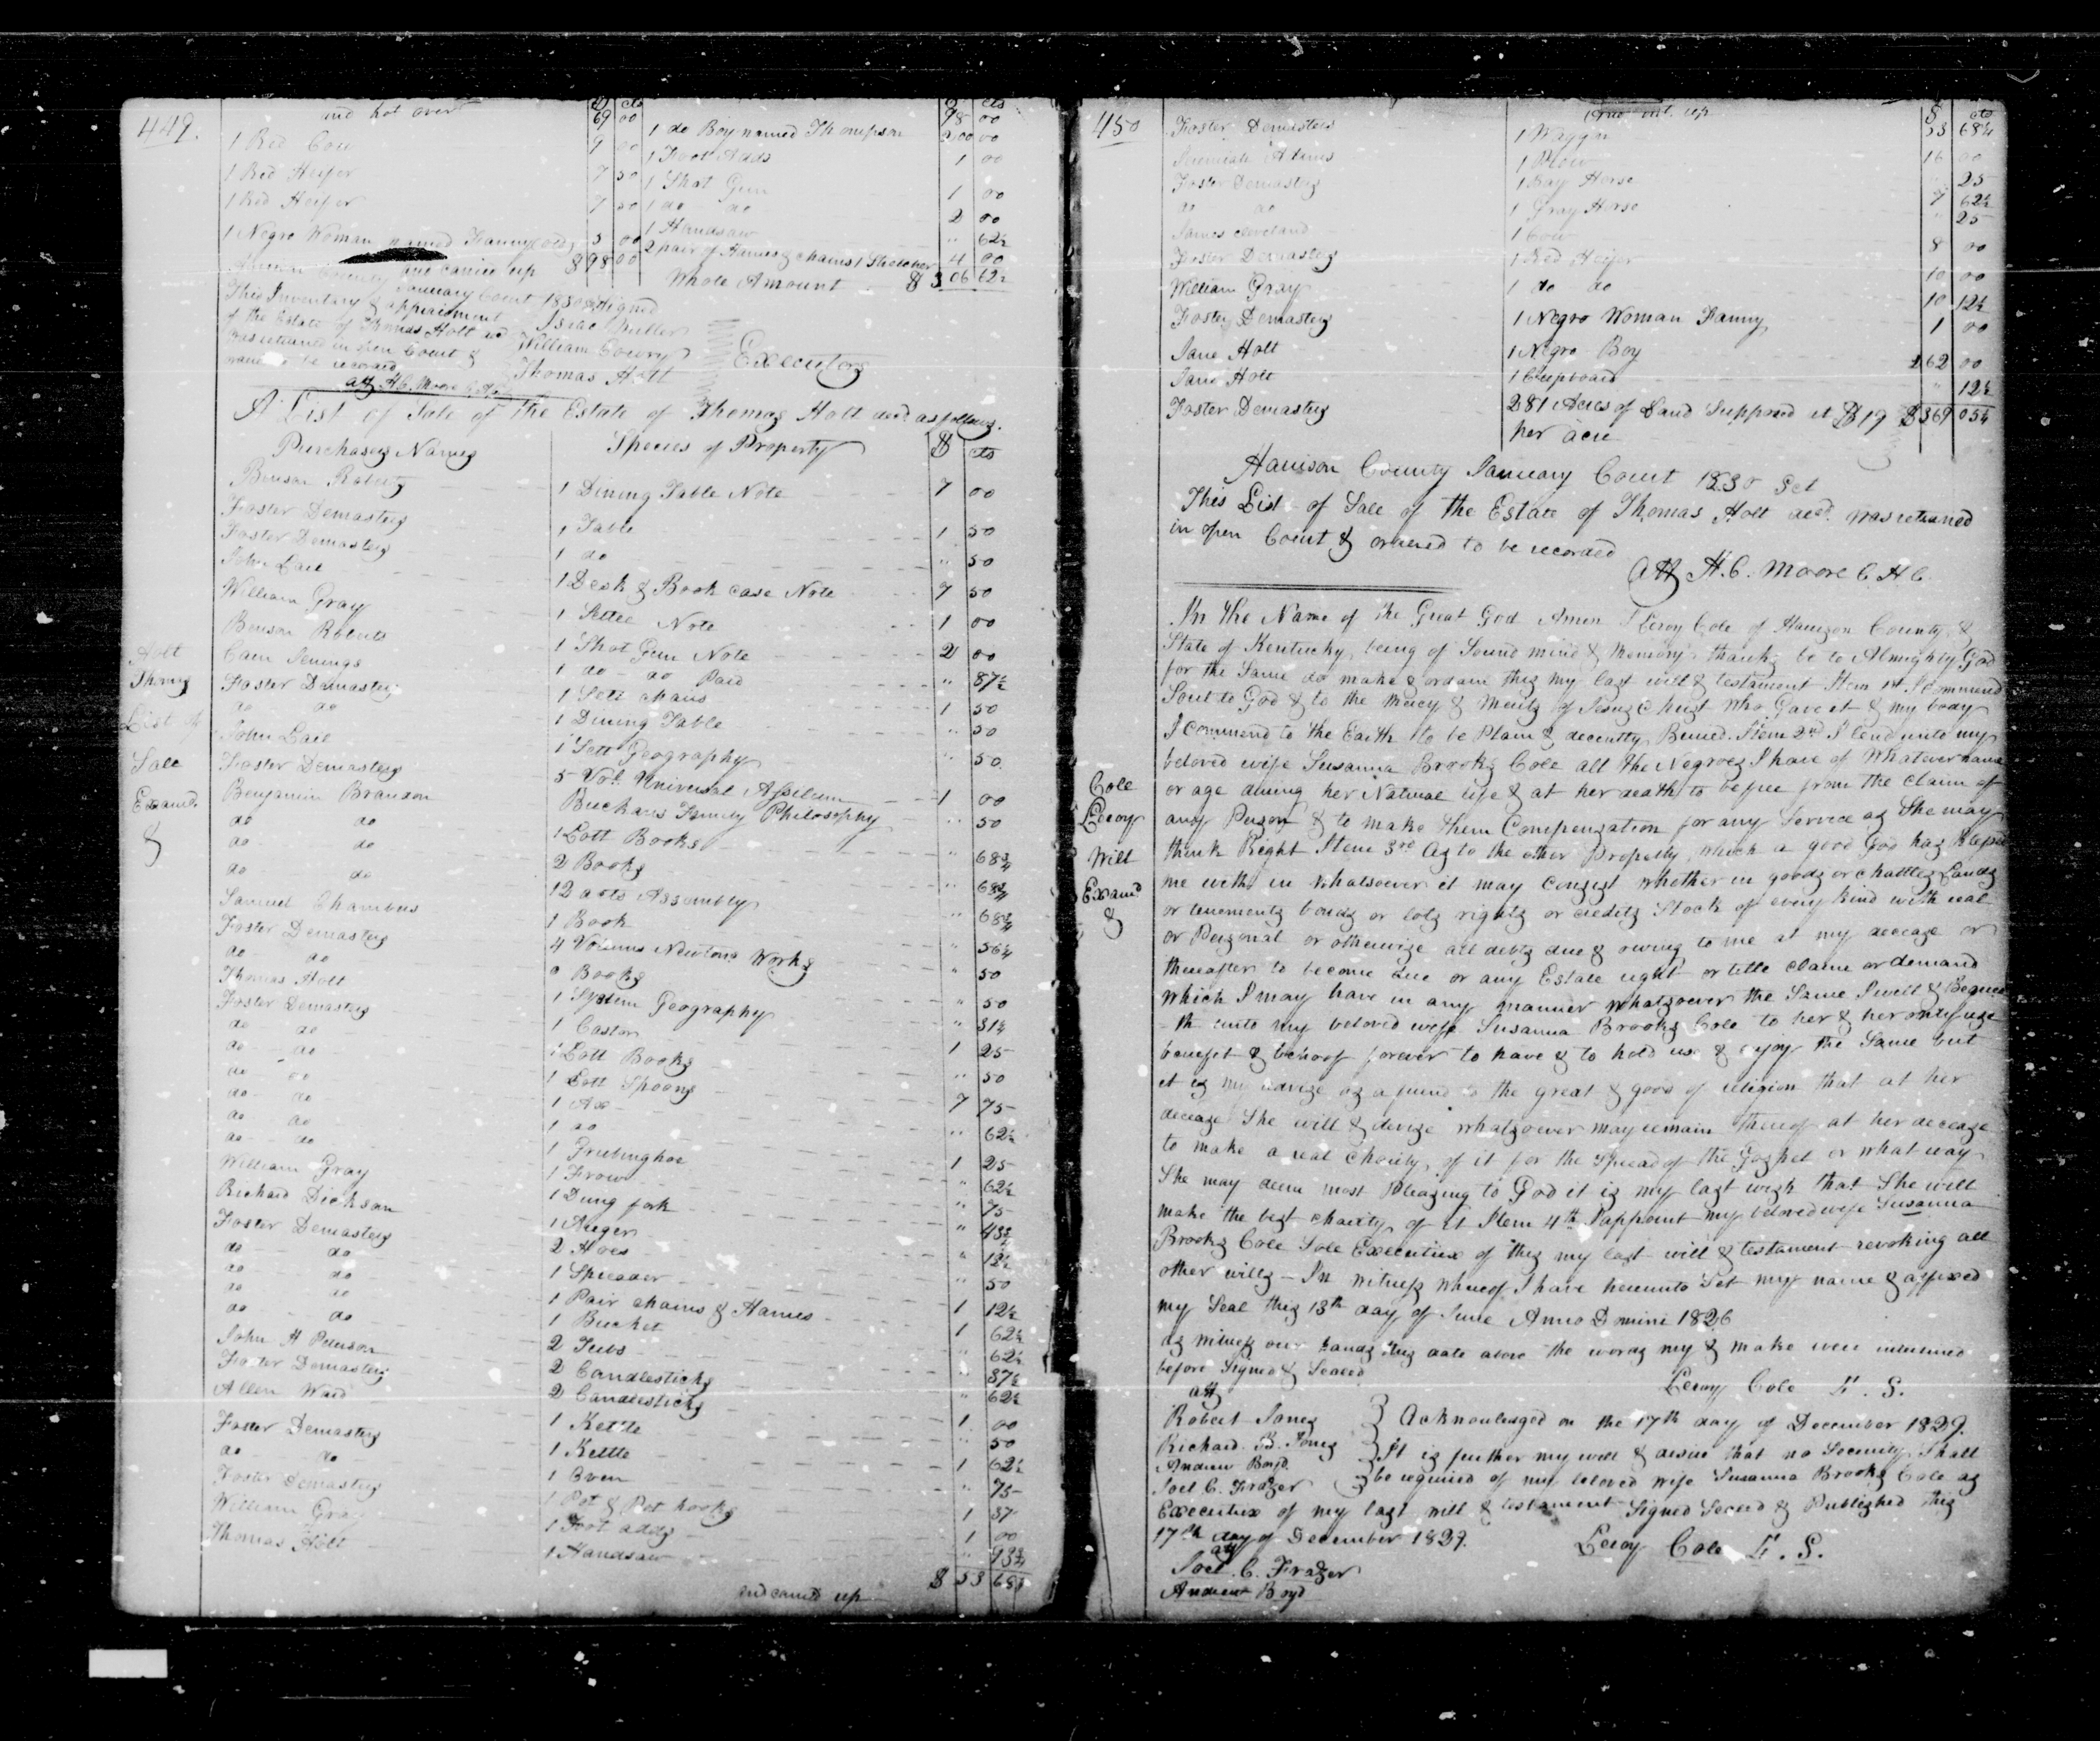 449.
and bot over $ cts
69 00
1 Red Cow 9 00
1 Red Heifer 7 50
1 Red Heifer 7 50
1 Negro Woman named Fanny (old) 5 00
and carried up $98 00
$ cts
98 00
1 do Boy named Thompson 200 00
1 Foot Adds 1 00
1 Shot Gun 1 00
1 do do 2 00
1 Handsaw " 62½
2 pair of Hames & chains 1 Stretcher 4 00
Whole Amount $ 306 62½
County January Court 1830
This Inventory & appraisment
of the Estate of Thomas Holt decd
was returned in open Court &
ordered to be recorded
att H. C. Moore
Signed
Isaac Miller
William Lowry
Thomas Holt
Executors
A List of Sale of the Estate of Thomas Holt decd as follows.
Purchasers Names Species of Property $ cts
Benson Roberts 1 Dining Table Note 7 00
Foster Demasters 1 Table 1 50
Foster Demasters 1 do " 50
John Lail 1 Desk & Book case Note 7 50
William Gray 1 Settee Note 1 00
Benson Roberts 1 Shot Gun Note 2 00
Cain Jenings 1 do do Paid " 87½
Foster Demasters 1 Sett chairs 1 50
do do 1 Dining Table " 50
John Lail 1 Sett Geography " 50
Foster Demasters 5 Vol. Universal Asselum 1 00
Benjamin Branson Buchans Family Philosophy " 50
do do 1 Lott Books " 68¾
do do 2 Books " 68¾
do do 12 acts Assembly " 68¾
Samuel Chambers 1 Book " 56¼
Foster Demasters 4 Volums Newtons Works " 50
do do Books " 50
Thomas Holt 1 System Geography " 31¼
Foster Demasters 1 Castor 1 25
do do 1 Lott Books " 50
do do 1 Lott Spoons 7 75
do do 1 Ax " 62½
do do 1 do 1 25
do do 1 Grubinghoe " 62½
do do 1 Frow " 75
William Gray 1 Dung fork " 43¾
Richard Dickson 1 Auger " 12½
Foster Demasters 2 Hoes " 50
do do 1 Spreader 1 12½
do do 1 Pair chains & Hames 1 62½
do do 1 Bucket " 62½
do do 2 Tubs " 37½
John H Peterson 2 Candlesticks " 62½
Foster Demasters 2 Candlesticks 1 00
Allen Ward 1 Kettle " 50
Foster Demasters 1 Kettle 1 62½
do do 1 Oven " 75
Foster Demasters 1 Pot & Pot hooks 1 37
William Gray 1 Foot adds 1 00
Thomas Holt 1 Handsaw " 93¾
and carried up $ 53 68¾
Holt
Thomas
List of
Sale
Examd.
&
450
Amo. bt. up $ cts
53 68¼
Foster Demasters 1 Waggon 16 00
Jeremiah Adams 1 Plow " 25
Foster Demasters 1 Bay Horse 7 62½
do do 1 Gray Horse " 25
James Cleveland 1 Cow 8 00
Foster Demasters 1 Red Heifer 10 00
William Gray 1 do do 10 12½
Foster Demasters 1 Negro Woman Fanny 1 00
Jane Holt 1 Negro Boy 262 00
Jane Holt 1 Cupboard " 12½
Foster Demasters 281 Acres of Land Supposed at $19 $369 05¼
per acre
Harrison County January Court 1830 Sct
This List of Sale of the Estate of Thomas Holt decd. was returned
in open Court & ordered to be recorded
Att H. C. Moore C H C
Cole
Leroy
Will
Examd
&
In the Name of the Great God Amen I Leroy Cole of Harrison County &
State of Kentucky, being of Sound mind & Memory thanks be to Almighty God
for the Same do make & ordain this my last will & testament Item 1st I commend
Soul to God & to the Mercy & Merits of Jesus Christ Who Gave it & my body
I commend to the Earth to be Plain & decently Buried. Item 2nd I lend unto my
beloved wife Susanna Brooks Cole all the Negroes I have of Whatever name
or age during her Natural life & at her death to be free from the claim of
any Person & to make them Compensation for any Service as She may
think Right Item 3rd As to the other Property, which a good God has blessed
me with in whatsoever it may consist whether in goods or chattles Lands
or tenements bonds or lots rights or credits Stock of every kind with real
or Personal or otherwise all debts due & owing to me at my decease or
thereafter to become due or any Estate right or title claim or demand
which I may have in any manner whatsoever the Same I will & Bequea
-th unto my beloved wife Susanna Brooks Cole to her & her only use
benefit & behoof forever to have & to hold use & enjoy the Same but
it is my advise as a friend to the great & good of religion that at her
decease She will & devise whatsoever may remain thereof at her decease
to make a real Charity, of it for the Spread of the Gospel or what way
She may deem most Pleasing to God it is my last wish that She will
make the best charity of it Item 4th I appoint my beloved wife Susanna
Brooks Cole Sole Executrix of this my last will & testament revoking all
other wills - In Witness Whereof I have hereunto Set my name & affixed
my Seal this 13th day of June Anno Domini 1826
as witness our hands this date above the words my & make were interlined
before Signed & Sealed
Leroy Cole L. S.
att
Robert Jones
Richard B. Jones
Andrew Boyd
Joel C. Frazer
Acknowledged on the 17th day of December 1829.
It is further my will & desire that no Security Shall
be required of my beloved wife Susanna Brooks Cole as
Executrix of my last will & testament Signed Sealed & Published this
17th day of December 1829. Leroy Cole L. S.
att
Joel C. Frazer
Andrew Boyd